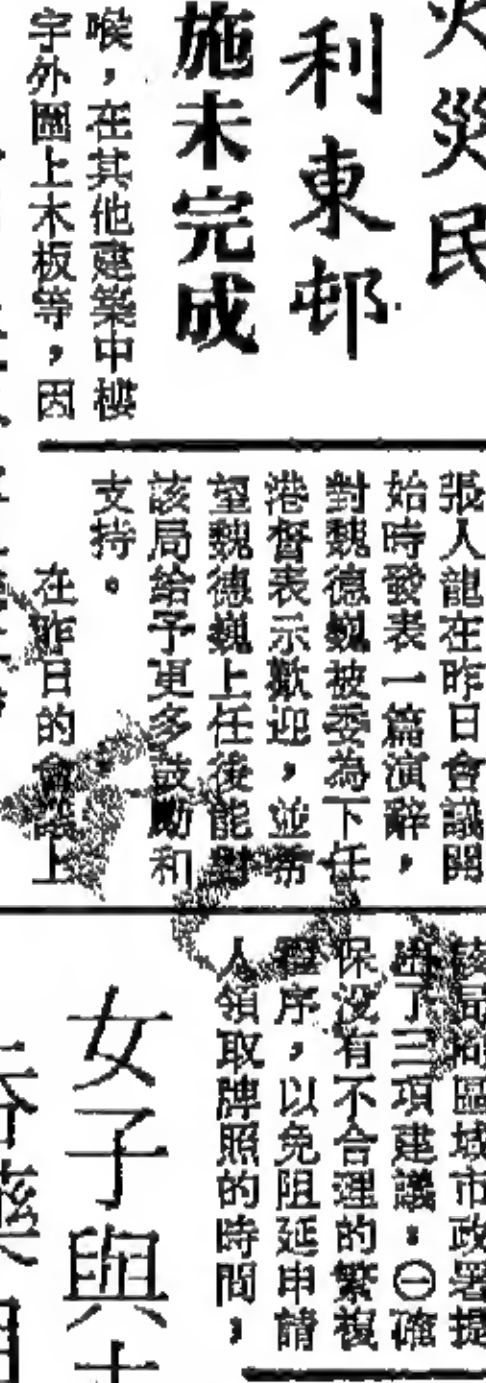 火災民
利東邨
施未完成
喉，在其他建築中樓
宇外圍上木板等，因
張人龍在昨日會議開
始時發表一篇演辭，
對魏德巍被委為下任
港督表示歡迎，並希
望魏德巍上任後能對
該局給予更多鼓勵和
支持。
在昨日的會議上
該局向區域市政署提
出了三項建議：㊀確
保沒有不合理的繁複
程序，以免阻延申請
人領取牌照的時間，
女子與